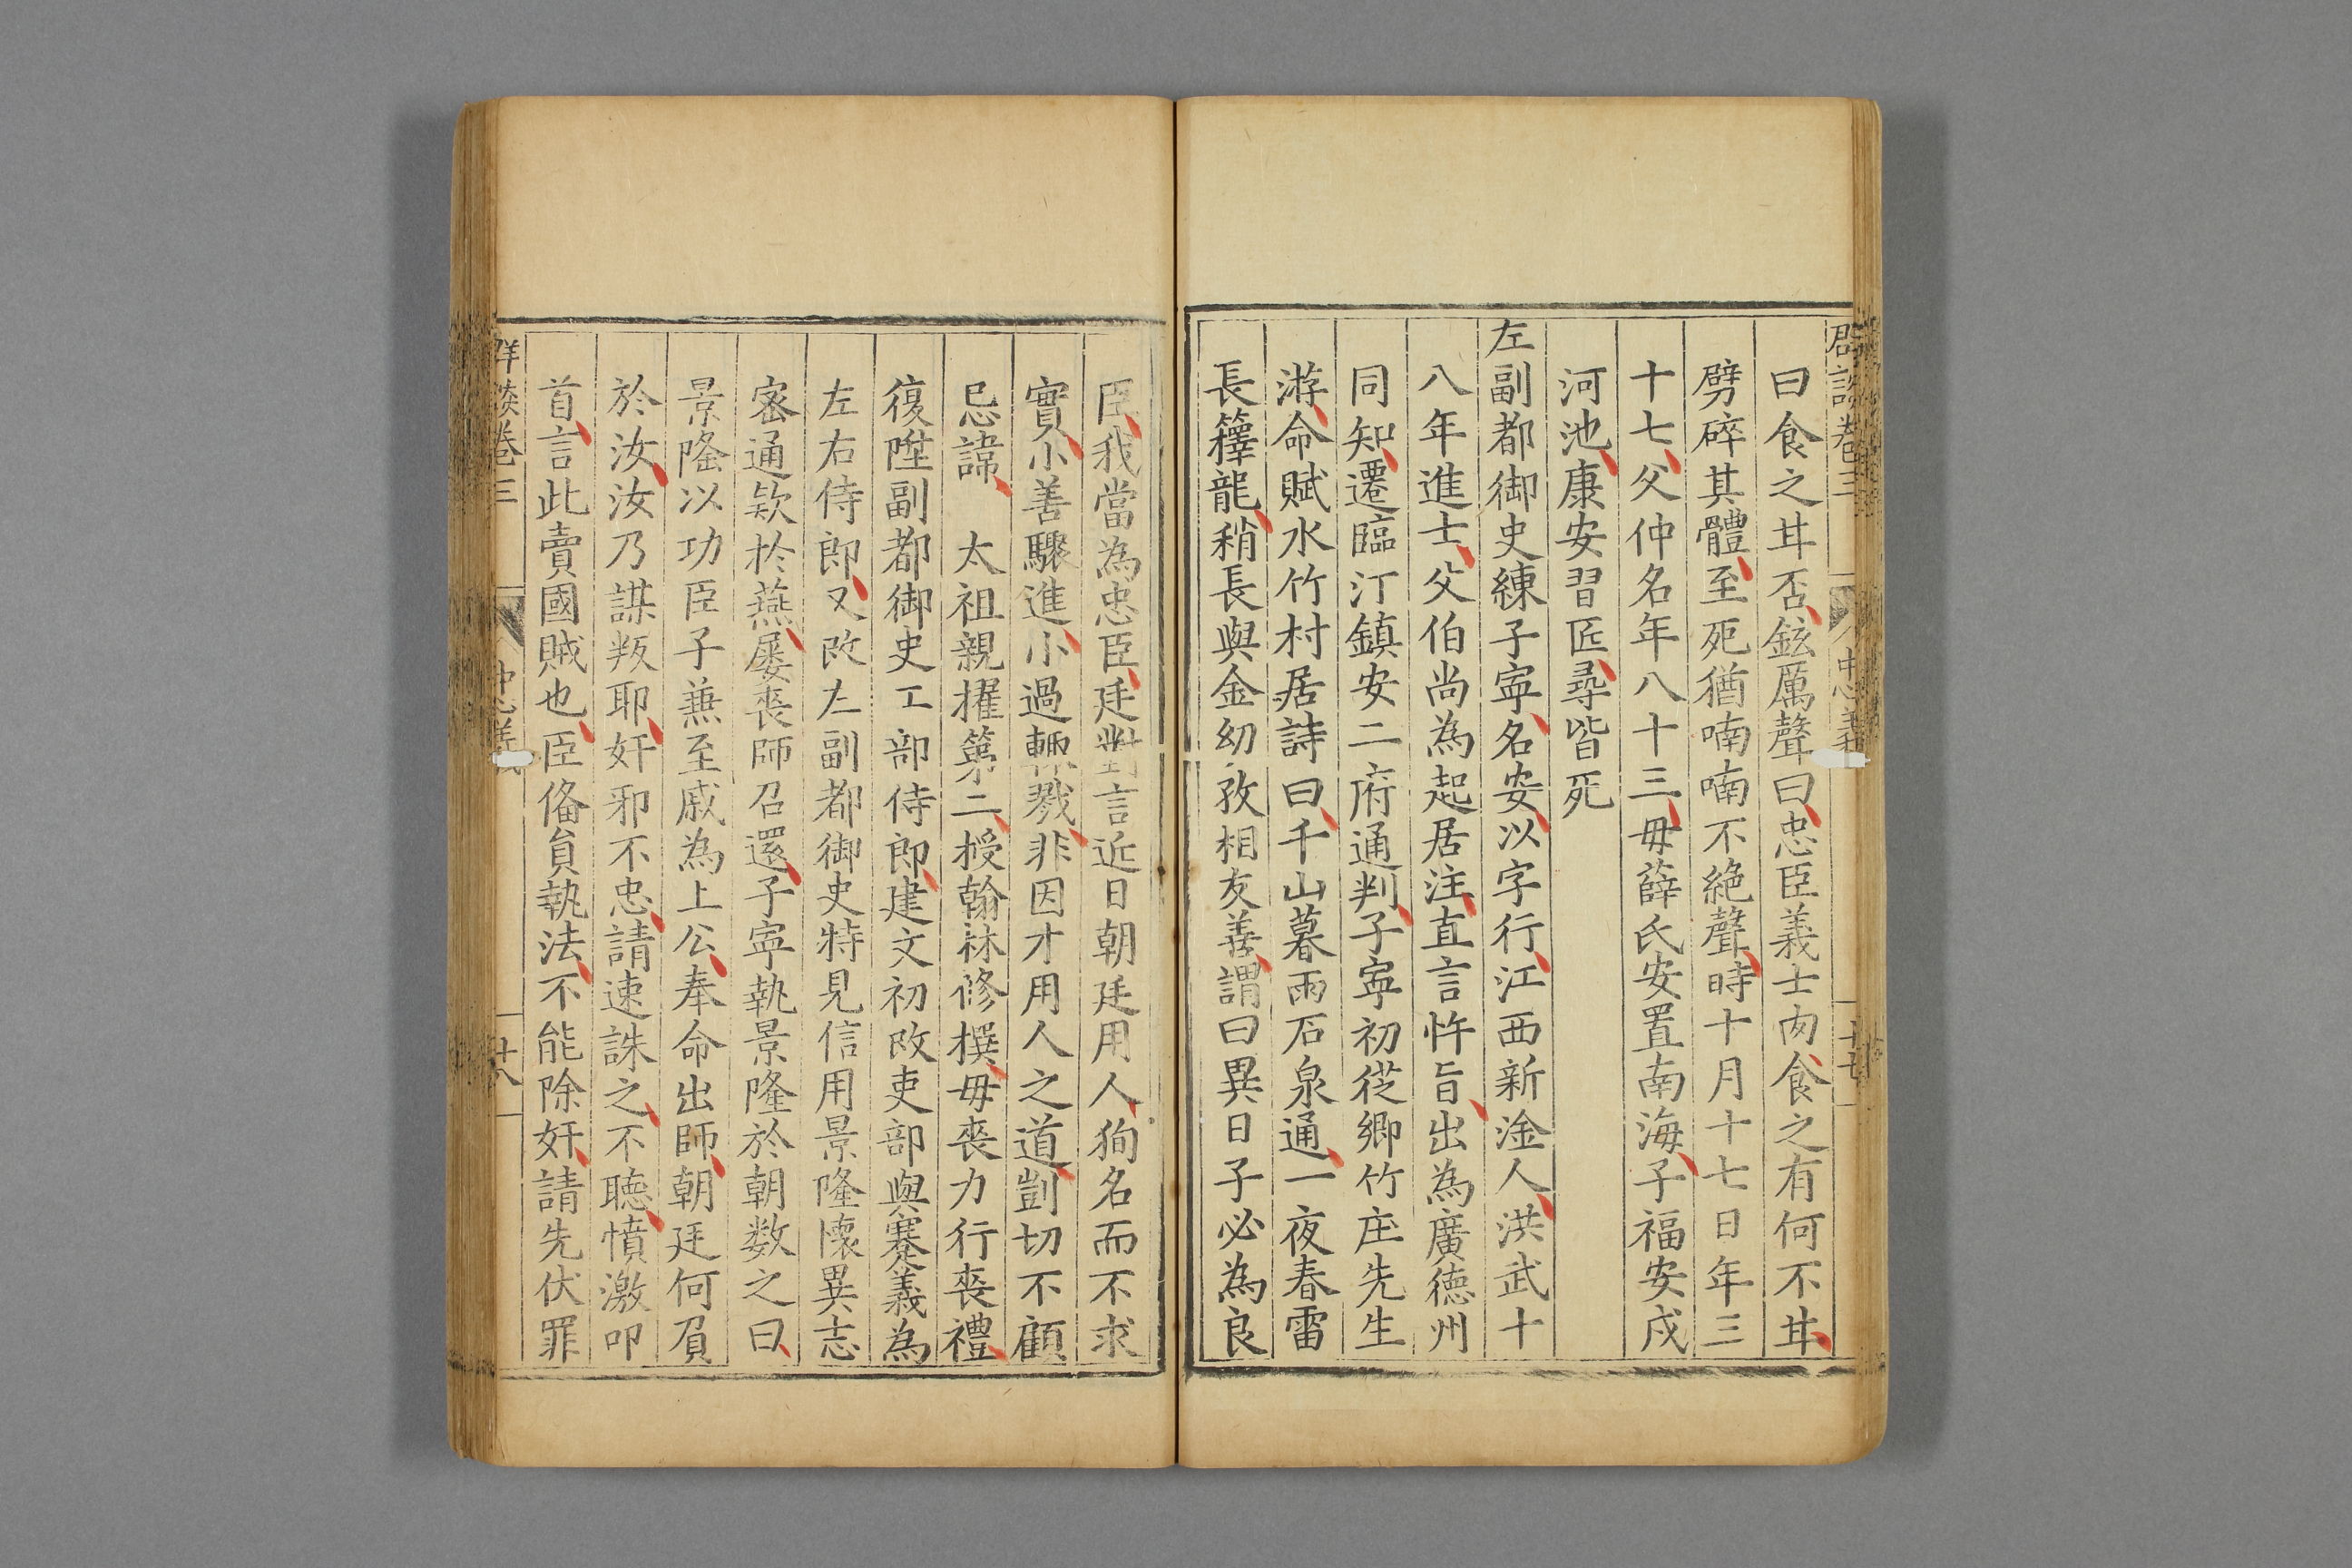 群談卷三 忠義 十七
曰食之甘否鉉厲聲曰忠臣義士肉食之有何不甘
劈碎其體至死猶喃喃不絕聲時十月十七日年三
十七父仲名年八十三毋薛氏安置南海子福安戍
河池康安習匠尋皆死
左副都御史練子寧名安以字行江西新淦人洪武十
八年進士父伯尚為起居注直言忤旨出為廣德州
同知遷臨汀鎮安二府通判子寧初從鄉竹庄先生
游命賦水竹村居詩曰千山暮雨石泉通一夜春雷
長籜龍稍長與金幼孜相友善謂曰異日子必為良
臣我當為忠臣廷對言近日朝廷用人狥名而不求
實小善驟進小過輙戮非因才用人之道剴切不顧
忌諱 太祖親擢第二授翰林修撰毋喪力行喪禮
復陞副都御史工部侍郎建文初改吏部與蹇義為
左右侍郎又改左副都御史特見信用景隆懷異志
密通欵於燕屡喪師召還子寧執景隆於朝数之曰
景隆以功臣子蕪至戚為上公奉命出師朝廷何負
於汝汝乃謀叛耶奸邪不忠請速誅之不聽憤激叩
首言此賣國賊也臣俻員執法不能除奸請先伏罪
群談卷三 忠義 十八